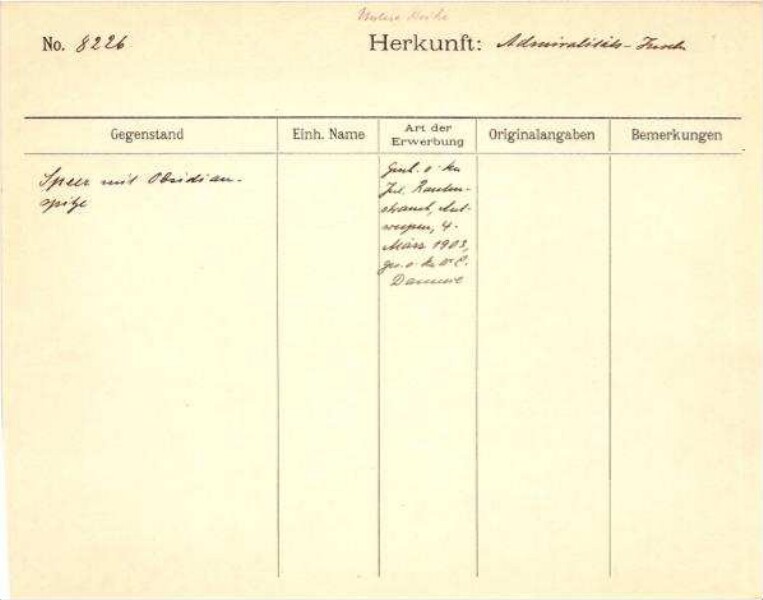 No. 8226 Herkunft: Admiralitäts-Inseln
Gegenstand
Einh. Name
Art der
Erwerbung
Originalangaben
Bemerkungen
Speer mit Obsidian-
spitze
Jul. Rauten-
strauch, Ant-
werpen, 4.
März 1903,